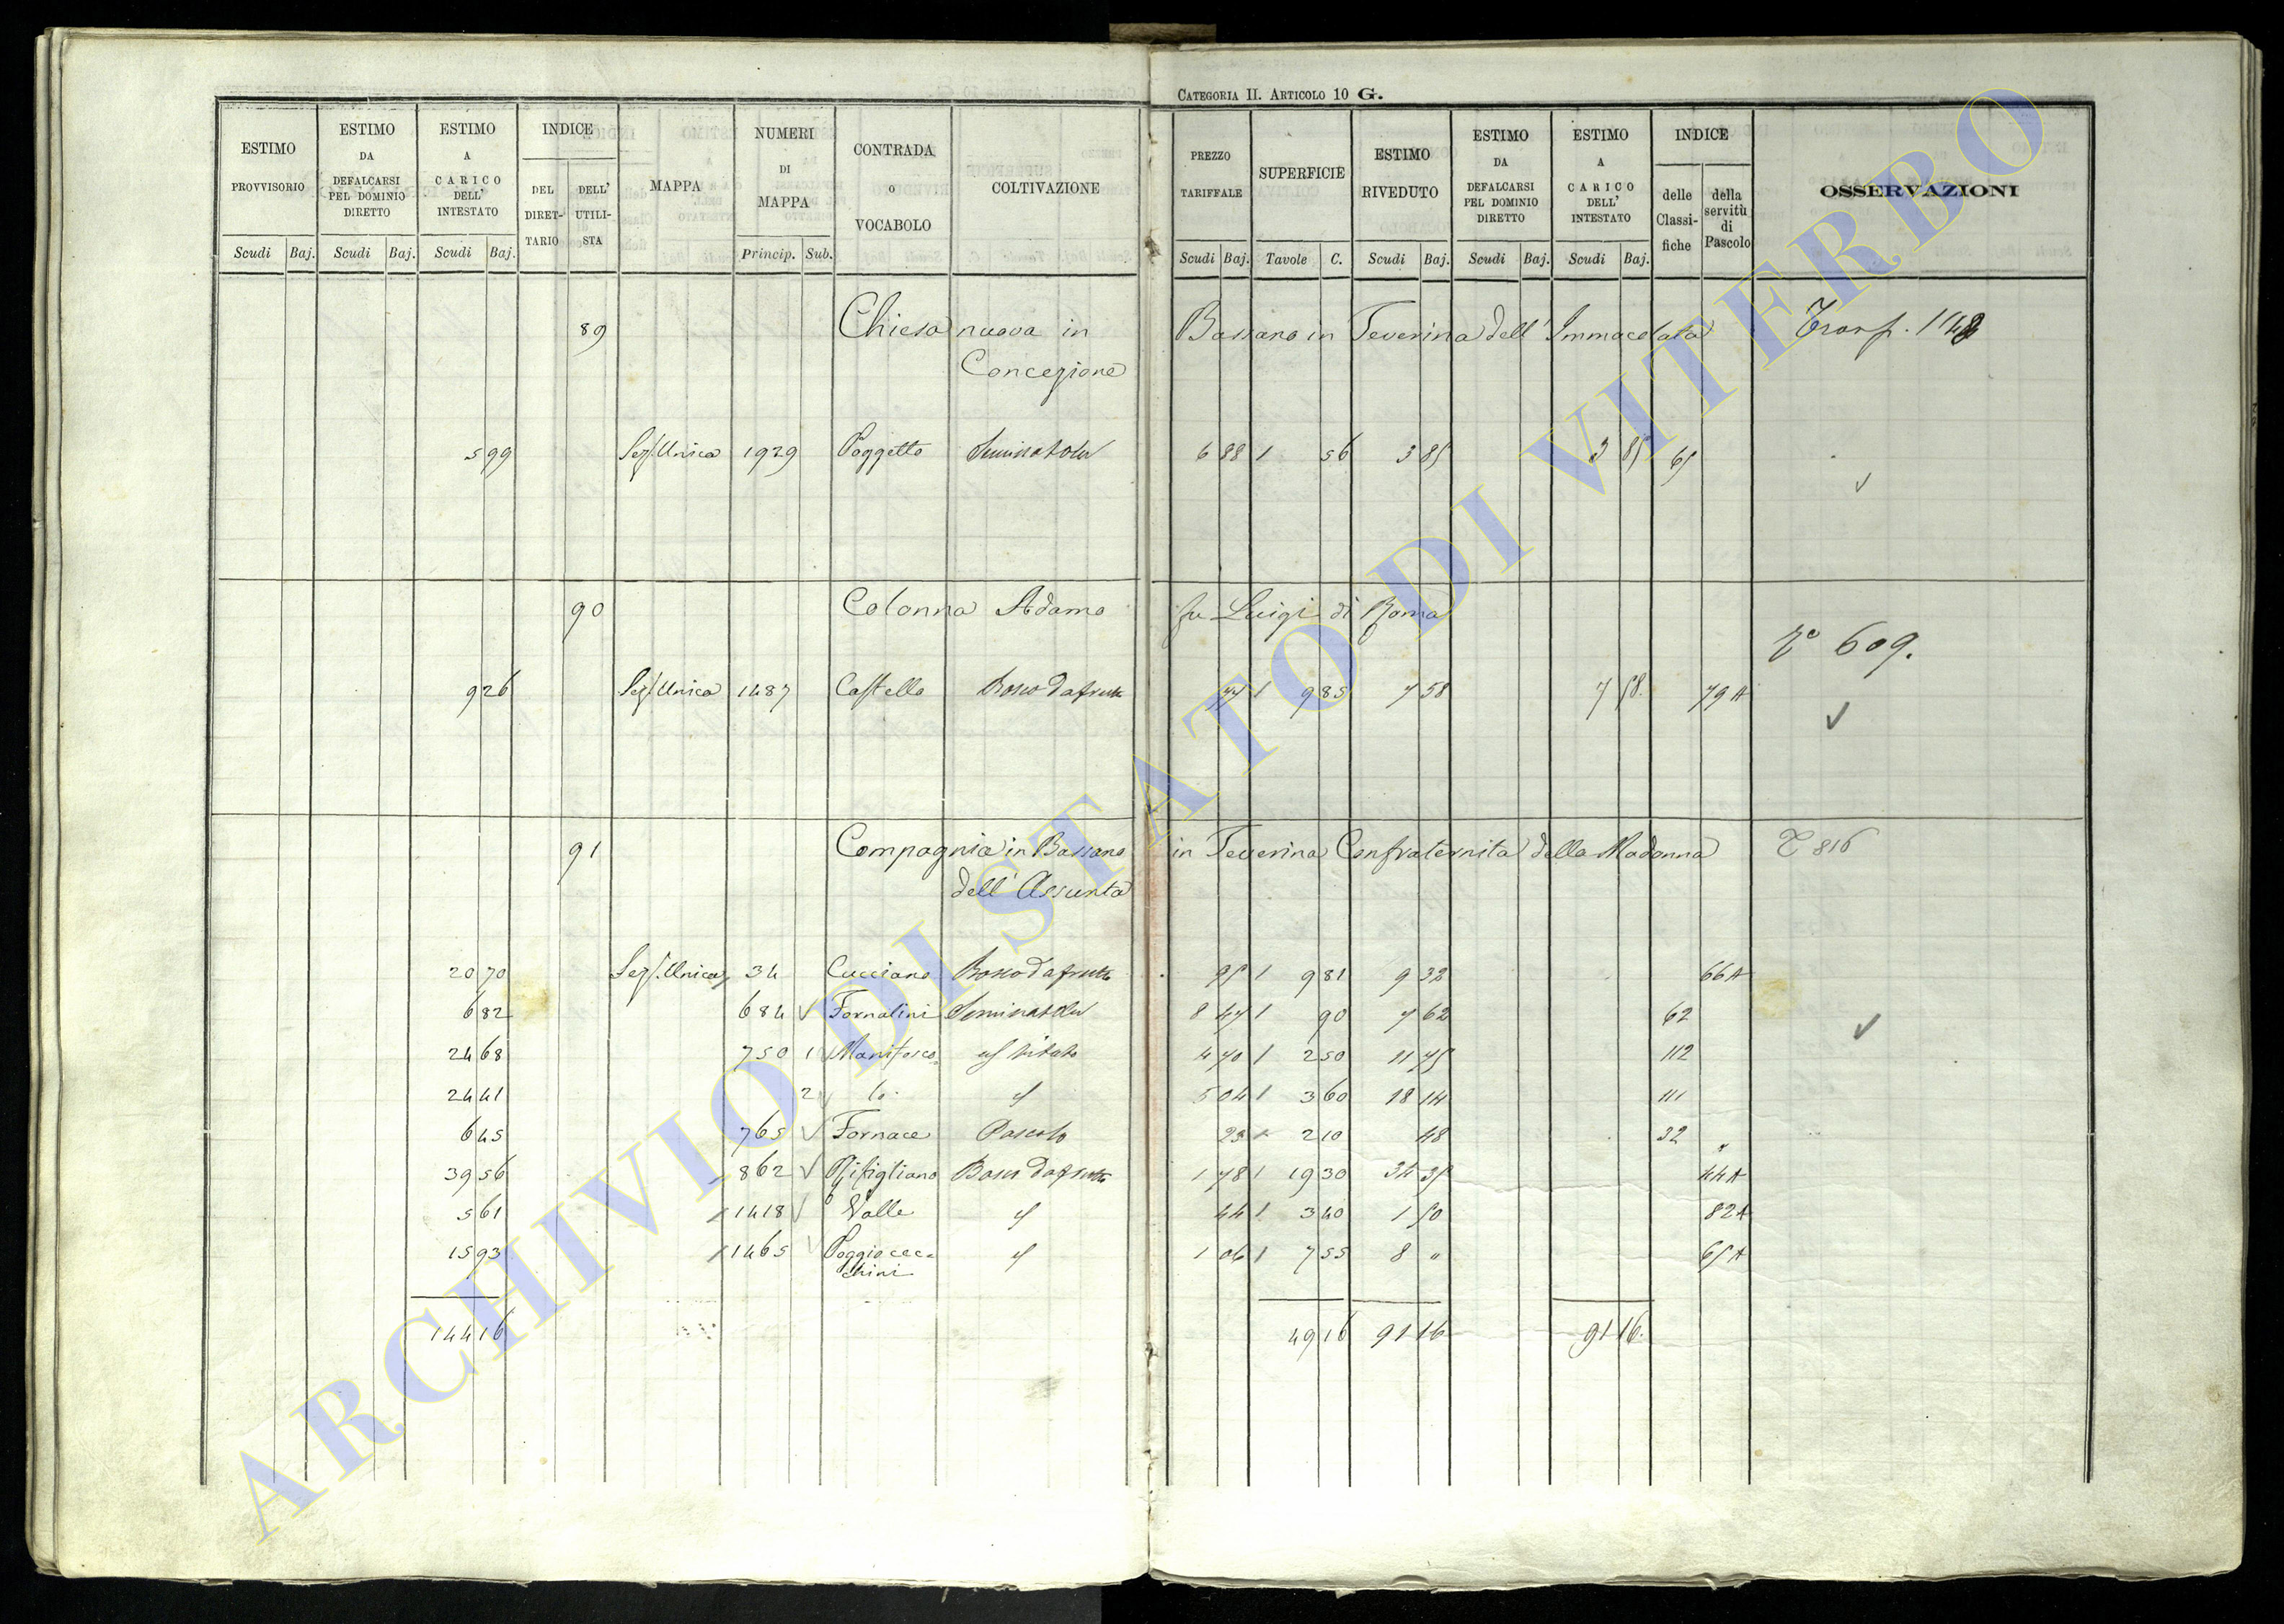 CATEGORIA II. ARTICOLO 10 G.
ESTIMO PROVVISORIO
ESTIMO DA DEFALCARSI PEL DOMINIO DIRETTO
ESTIMO A CARICO DELL' INTESTATO
INDICE
DEL DIRET-TARIO
DELL' UTILI-STA
MAPPA
NUMERI DI MAPPA
CONTRADA o VOCABOLO
COLTIVAZIONE
PREZZO TARIFFALE
SUPERFICIE
ESTIMO RIVEDUTO
ESTIMO DA DEFALCARSI PEL DOMINIO DIRETTO
ESTIMO A CARICO DELL' INTESTATO
INDICE
delle Classi-fiche
della servitù di Pascolo
OSSERVAZIONI
Scudi Baj. Scudi Baj. Scudi Baj. Princip. Sub. Scudi Baj. Tavole C. Scudi Baj. Scudi Baj. Scudi Baj.
89 Chiesa nuova in Bassano in Teverina dell' Immacolata
Concezione
5 99 Sez. Unica 1929 Poggetto Seminativo 6 88 1 56 3 85 3 85 65
90 Colonna Adamo fu Luigi di Roma
609.
9 26 Sez. Unica 1487 Castello Bosco da frutto 77 1 9 85 7 58 7 58. 79 A
91 Compagnia in Bassano in Teverina Confraternita della Madonna T 816
dell' Assunta
20 70 Sez. Unica 34 Cucciano Bosco da frutto 95 1 9 81 9 32 66 A
6 82 684 Fornalini Seminativo 8 47 1 90 7 62 62
24 68 750 1 vitato 4 70 1 2 50 11 75 112
24 41 2 5 04 1 3 60 18 14 111
6 45 765 Fornace Pascolo 23 2 10 48 32
39 56 862 Bosco da frutto 1 78 1 19 30 34 35 44 A
5 61 1418 Valle 44 1 3 40 1 50 82 A
15 93 1465 Poggio cec= 1 06 1 7 55 8 " 65 A
chini
144 16 49 16 91 16 91 16.
ARCHIVIO DI STATO DI VITERBO